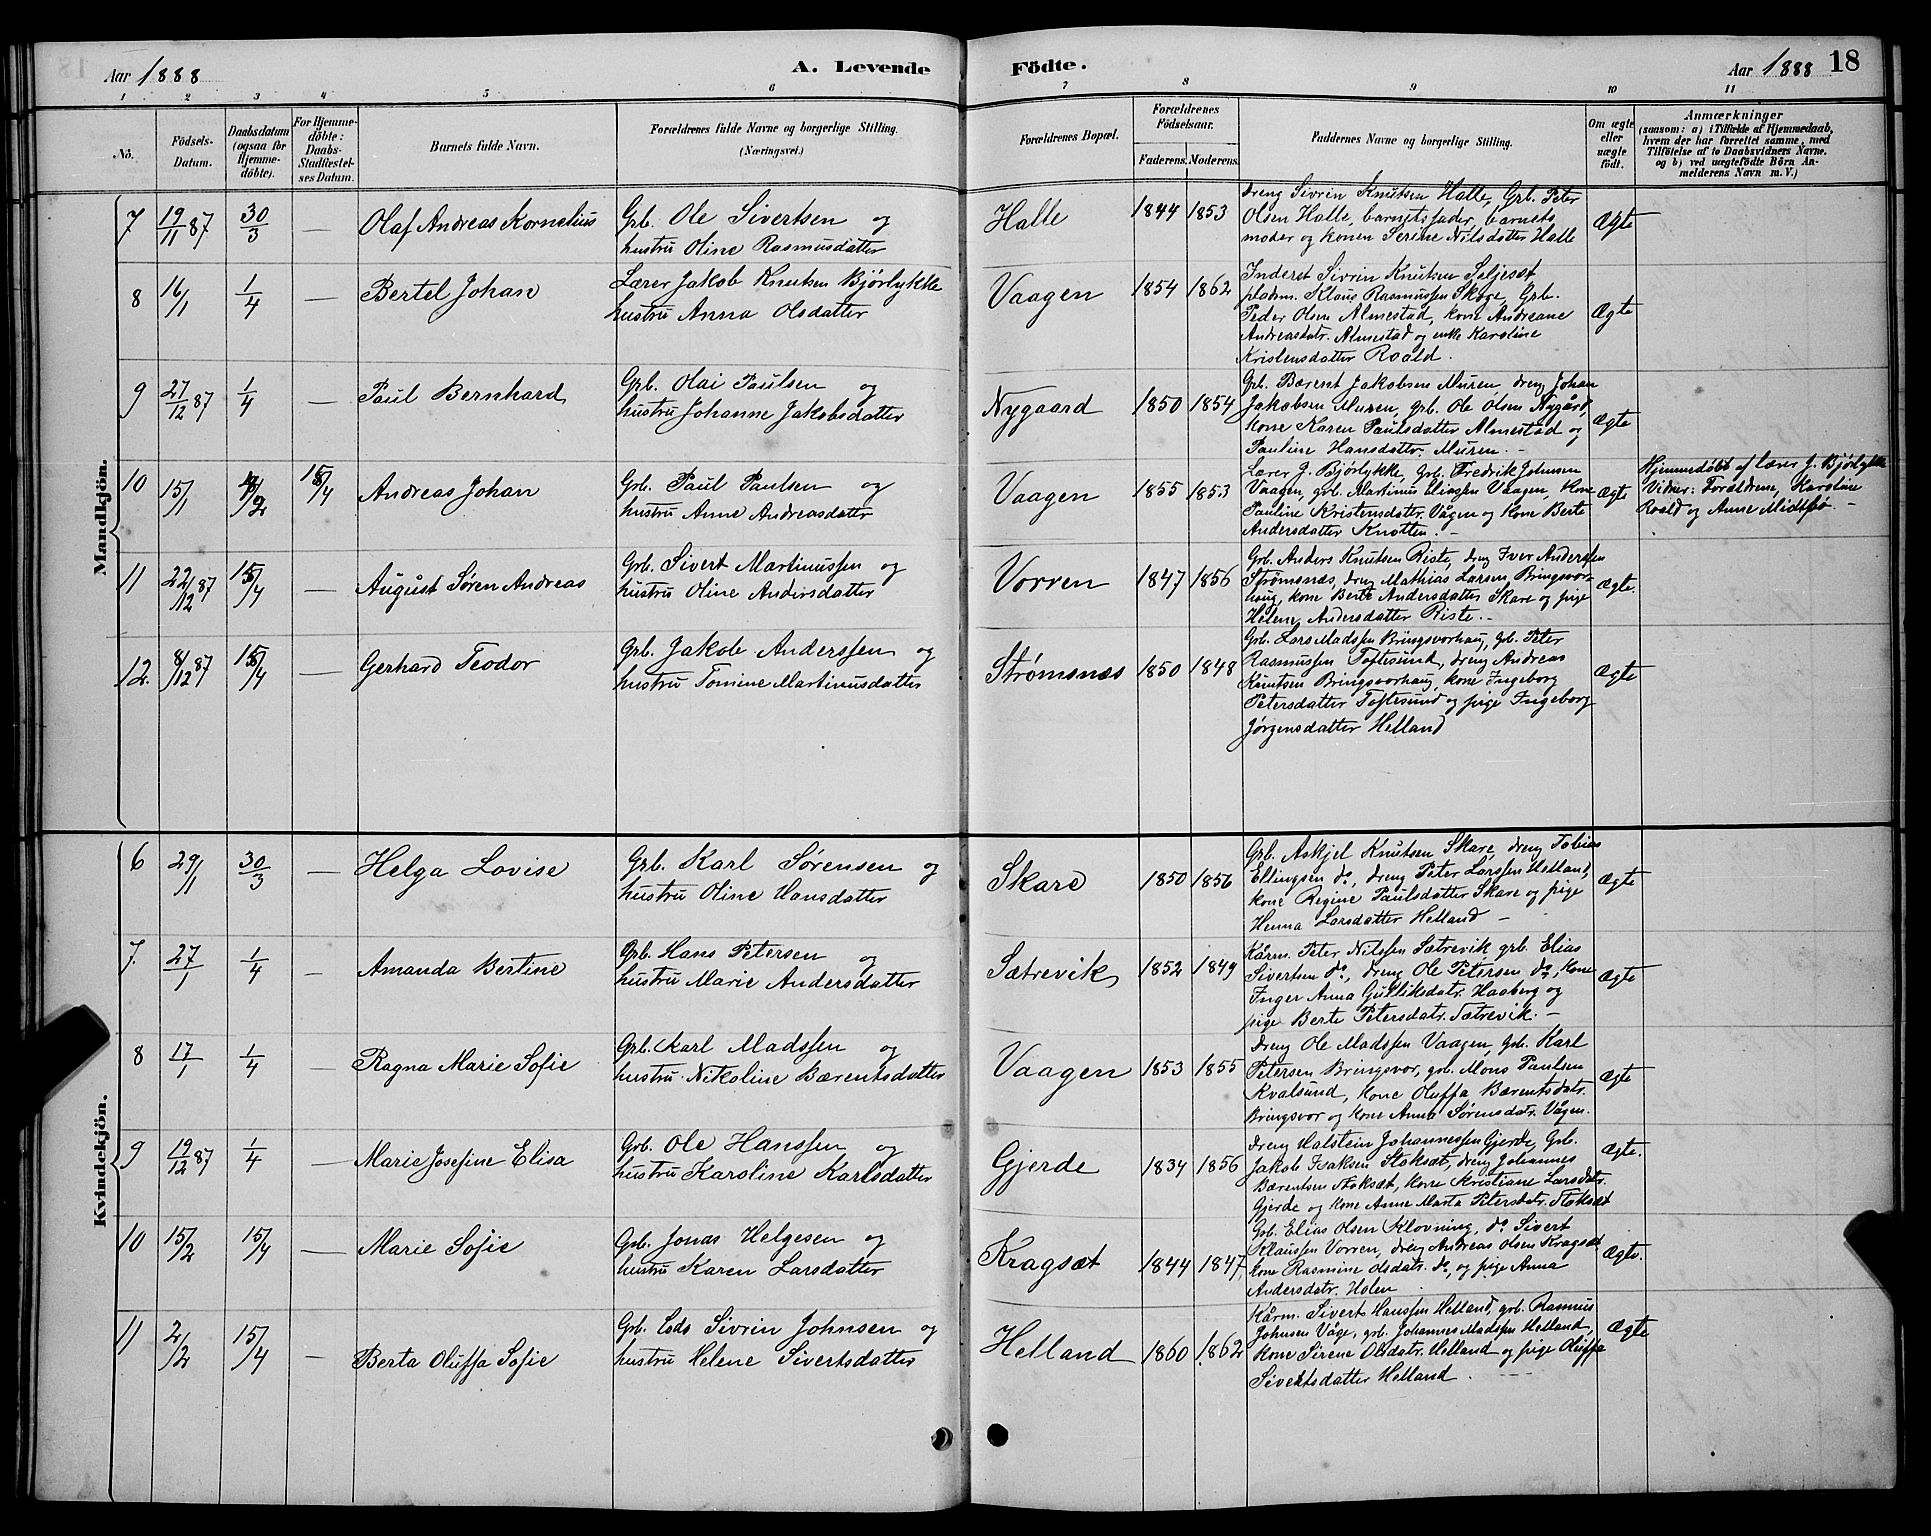 Aar 1888
A. Levende
Fødte.
Aar 1888
18
1 2 3 4 5 6 7 8 9 10 11
No.
Födsels-
Datum.
Daabsdatum
(ogsaa för
Hjemme-
döbte).
For Hjemme-
döbte:
Daabs-
Stadfæstel-
ses Datum.
Barnets fulde Navn.
Forældrenes fulde Navne og borgerlige Stilling.
(Næringsvei.)
Forældrenes Bopæl.
Forældrenes
Födselsaar.
Faderens. Moderens.
Faddernes Navne og borgerlige Stilling.
Om ægte
eller
uægte
födt.
Anmærkninger
(saasom: a) i Tilfælde af Hjemmedaab,
hvem der har forrettet samme, med
Tilföielse af to Daabsvidners Navne.
og b) ved uægtefödte Börn An-
melderens Navn m. V.)
Mandkjön.
7 19/11 87 30/3 — Olaf Andreas Kornelius
Grb. Ole Sivertsen og
hustru Oline Rasmusdatter
Halle 1844 1853
dreng Sivrin Knutsen Halle, Grb. Peter
Olsen Halle, barnetsfader, barnets
moder og konen Serine Nilsdatter Halle
Ægte
8 16/1 1/4 — Bertel Johan
Lærer Jakob Knutsen Bjørlykke
hustru Anna Olsdatter
Vaagen 1854 1862
Inderst Sivrin Knutsen Seljesæt
pladsm. Klaus Rasmussen Skoge, Grb.
Peder Olsen Almestad, kone Andreane
Andreasdatr. Almestad og enke Karoline
Kristensdatter Roald.
Ægte
9 27/12 87 1/4 — Paul Bernhard
Grb. Olai Paulsen og
hustru Johanne Jakobsdatter
Nygaard 1850 1854
Grb. Bærent Jakobsen Muren dreng Johan
Jakobsen Muren, grb. Ole Olsen Nygård,
kone Karen Paulsdatter Almestad og
Pauline Hansdatter Muren. —
Ægte
10 15/1 /2 15/4 Andreas Johan
Grb. Paul Paulsen og
hustru Anne Andreasdatter
Vaagen 1855 1853
Lærer J. Bjørlykke, Grb. Fredrik Johnsen
Vaagen, grb. Martinus Eliassen Vaagen, kone
Pauline Kristensdatr. Vågen og kone Berte
Andersdatter Knotten. —
Ægte
Hjemmedøbt af lærer J. Bjørlykke
Vidner: Forældrene, Karoline
Roald og Anne Midtbø. —
11 22/12 87 15/4 — August Søren Andreas
Grb. Sivert Martinussen og
hustru Oline Andersdatter
Vorren 1847 1856
Grb. Anders Knutsen Riste, dreng Iver Anderssen
Strømsnæs, dreng Mathias Larsen Bringsvor-
haug, kone Berte Andersdatter Skare og pige
Helene Andersdatter Riste. —
Ægte.
12. 8/12 87 15/4 — Gerhard Teodor
Grb. Jakob Anderssen og
hustru Tomine Martinusdatter
Strømsnæs 1850 1848
Grb. Lars Madssen Bringsvorhaug, grb. Peter
Rasmussen Toftesund, dreng Andreas
Knutsen Bringsvorhaug, kone Ingeborg
Petersdatter Toftesund og pige Ingeborg
Jørgensdatter Helland
Ægte
Kvindekjön.
6 29/1 30/3 — Helga Lovise
Grb. Karl Sørensen og
hustru Oline Hansdatter
Skare 1850 1856
Grb. Askjel Knutsen Skare, dreng Tobias
Ellingsen do, dreng Peter Larssen Helland,
kone Regine Paulsdatter Skare og pige
Henna Larsdatter Helland —
Ægte
7. 27/1 1/4 — Amanda Bertine
Grb. Hans Petersen og
hustru Marie Andersdatter
Sætrevik 1852 1849
Kårm. Peter Nilssen Sætrevik, grb. Elias
Sivertsen do, dreng Ole Petersen do, kone
Inger Anna Gulliksdatr. Haaberg og
pige Berte Petersdatr. Sætrevik. —
Ægte
8 17/1 1/4 — Ragna Marie Sofie
Grb. Karl Madssen og
hustru Nikoline Bærentsdatter
Vaagen 1853 1855
dreng Ole Madssen Vaagen, grb. Karl
Petersen Bringsvor, grb. Mons Paulsen
Kvalsund, kone Oluffa Bærentsdatr.
Bringsvor og kone Anna Sørensdatr. Vågen.
Ægte
9 19/12 87 1/4 — Marie Josefine Elisa
Grb. Ole Hanssen og
hustru Karoline Karlsdatter
Gjerde 1834 1856
dreng Halstein Johannessen Gjerde, Grb.
Jakob Isaksen Stoksæt, dreng Johannes
Bærentsen Stoksæt, kone Kristiane Larsdatr.
Gjerde og kone Anne Marta Petersdatr. Stoksæt
Ægte.
10 15/2 15/4 — Marie Sofie
Grb. Jonas Helgesen og
hustru Karen Larsdatter
Kragsæt 1844 1847
Grb. Elias Olsen Kløvning, do Sivert
Klaussen Vorren, dreng Andreas Olsen Kragsæt
kone Rasmine Olsdatr. do, og pige Anna
Andersdatr. Holen
Ægte.
11 2/2 15/4 — Berta Oluffa Sofie
Grb. Eds Sivrin Johnsen og
hustru Helene Sivertsdatter
Helland 1860 1862
Kårm. Sivert Hanssen Helland, grb. Rasmus
Johnsen Våge, grb. Johannes Madssen Helland,
kone Sirene Olsdatr. Helland og pige Oluffa
Sivertsdatter Helland.
Ægte